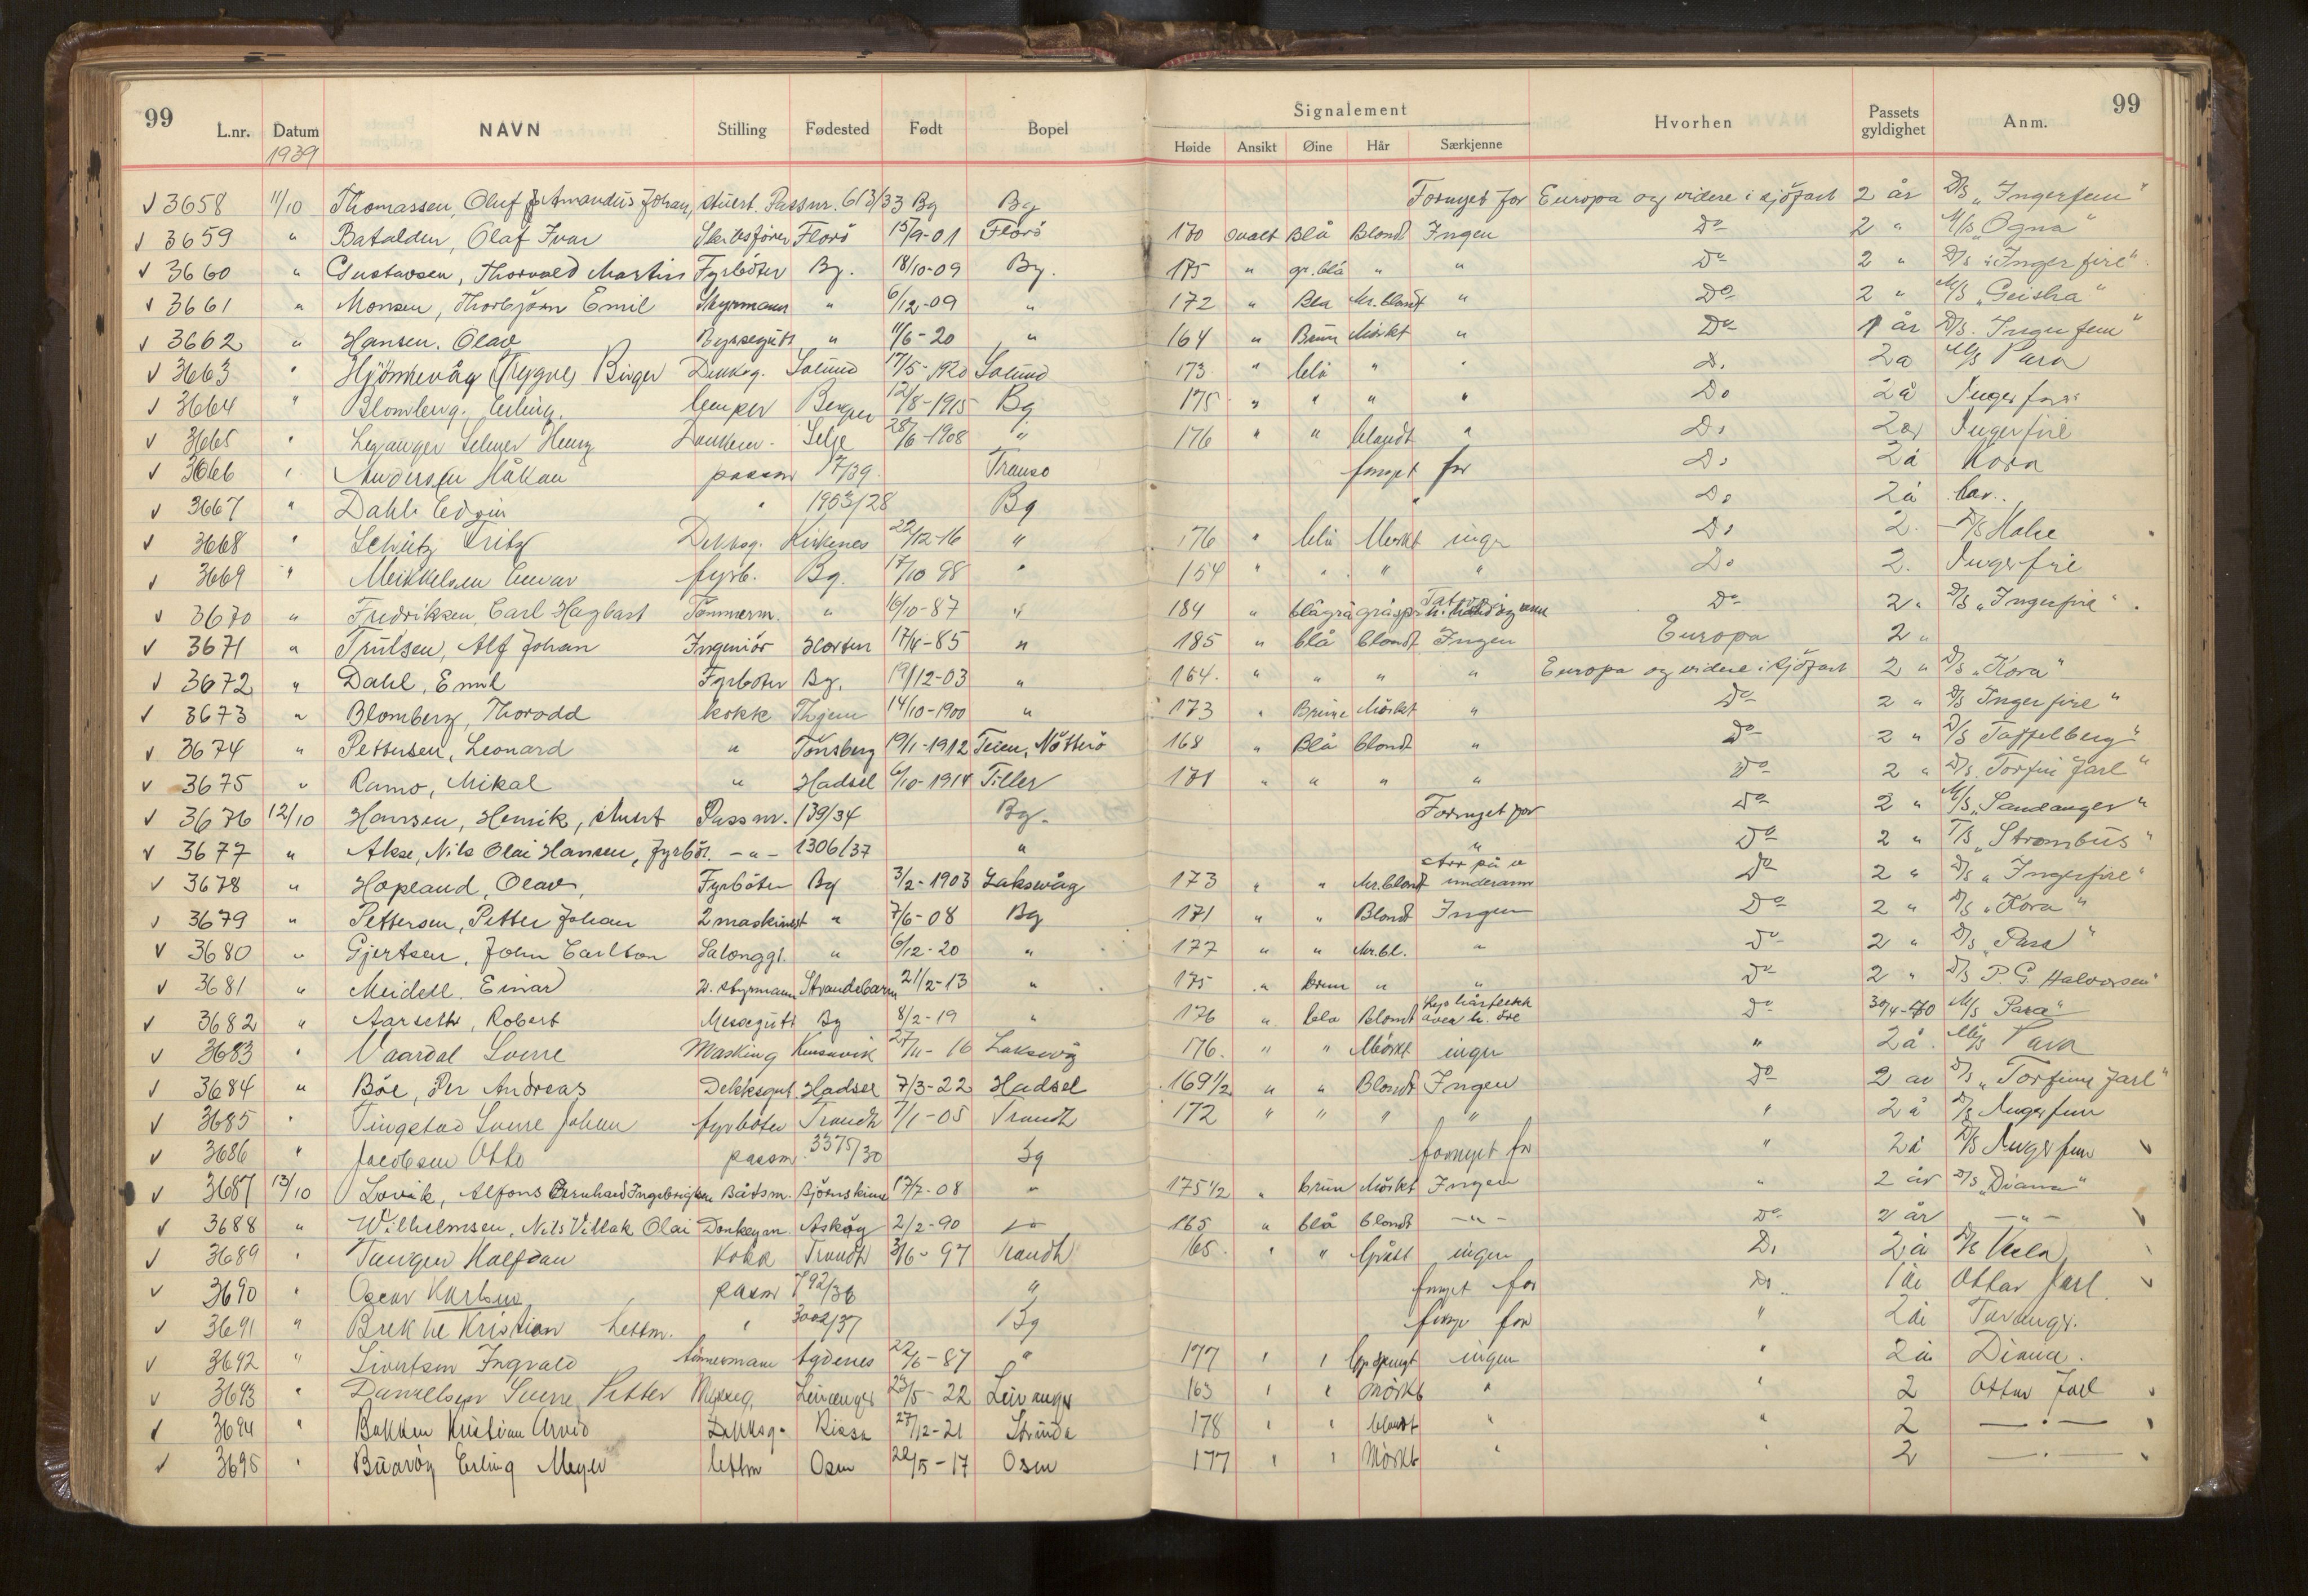 99 Signalement 99
L.nr. Datum NAVN Stilling Fødested Født Bopel Høide Ansikt Øine Hår Særkjenne Hvorhen Passets gyldighet Anm.
1939
√ 3658 11/10 Thomassen, Oluf Amandus Johan, stuert, Passnr. 613/33 Bg Bg Fornyet for Europa og videre i sjöfart 2 år D/S „Ingerfem"
√ 3659 " Batalden, Olaf Ivar Skibsförer Florö 15/9-01 Florö 170 ovalt Blå Blond Ingen Do 2 " M/S „Ogna"
√ 3660 " Gustavsen, Thorvald Martin Fyrböter Bg. 18/10-09 Bg. 175 " gr.blå " " Do 2 " D/S „Ingerfire"
√ 3661 " Monsen, Thorbjörn Emil Styrmann " 6/12-09 " 172 " Blå Mr.blondt " Do 2 " M/S „Geisha"
√ 3662 " Hansen, Olav Byssegutt " 11/6-20 " 164 " Brun Mörkt " Do 1 år D/S. Ingerfem"
√ 3663 " Hjönnevåg (Trygve) Birger Dekksg. Solund 17/5-1920 Solund 173 " blå " " Do 2 å M/S Para
√ 3664 " Blomberg, Erling. lemper Bergen 12/8-1915 Bg 175 " " " " Do 2 å Ingerfire
√ 3665 " Leganger Selmer Henry Donkem. Selje 28/6-1908 " 176 " " blondt " Do 2 å Ingerfire
√ 3666 " Andersen Håkan passnr 17/39. Tromsö fornyet for Do 2 å Kora
√ 3667 " Dahl Edvin " 1903/28 Bg " Do 2 å
√ 3668 " Schütz Fritz Dekksg. Kirkenes 22/12-16 " 176 " blå Mörkt ingen Do 2. D/S
√ 3669 " Mikkelsen Einar fyrb. Bg. 17/10 98 " 154 " " " " Do 2. Ingerfire
√ 3670 " Fredriksen, Carl Hagbart Tömmerm. " 16/10-87 " 184 " blågrå gråspr. Do 2 " D/S „Ingerfire"
√ 3671 " Trulsen, Alf Johan Ingeniör Horten 17/4-85 " 185 " blå blondt Ingen Europa 2 "
√ 3672 " Dahl, Emil Fyrböter Bg. 19/12-03 " 164. " " " " Europa og videre i sjöfart 2 " D/S „Kora"
√ 3673 " Blomberg, Thorodd kokk 14/10-1900 " 173 " Brune Mörkt " Do 2 " D/S Ingerfire"
√ 3674 " Pettersen, Leonard " Tönsberg 19/1-1912 Teien, Nötterö 168 " Blå blondt " Do 2 " D/S Taffelberg"
√ 3675 " Ramo, Mikal " Hadsel 6/10-1914 Tiller 171 " " " " Do 2 " D/S. Torfin Jarl"
√ 3676 12/10 Hansen, Henrik, stuert Passnr. 139/34 Bg. Fornyet for Do 2 " M/S „Sandanger"
√ 3677 " Akse, Nils Olai Hansen, Fyrböt. -"- 1306/37 " " Do 2 " T/S „Strombus"
√ 3678 " Hopland, Olav, Fyrböter Bg 3/2-1903 Laksevåg 173 " " Mr.blond arr på v underarm Do 2 " D/S „Ingerfire"
√ 3679 " Pettersen, Petter Johan 2 maskinist " 7/6-08 Bg 171 " " Blond Ingen Do 2 " D/S „Kora"
√ 3680 " Gjertsen, John Carlton Salonggt. " 6/12-20 " 177 " " Mr.bl. " Do 2 " D/S „Para"
√ 3681 " Meidell, Einar 2. styrmann Strandebarm 21/2-13 " 175 " brun " " Do 2 " D/S P. G. Halvorsen"
√ 3682 " Aarseth, Robert Messegutt Bg 8/2-19 " 176 " blå Blond Lys hårflekk over h. öre Do 30/4-40 M/S Para"
√ 3683 " Vaardal Sverre Masking Kinsarvik 27/11-16 Laksevåg 176. " " Mörkt ingen " 2 å M/S Para
√ 3684 " Böe, Per Andreas Dekksgut. Hadsel 7/3-22 Hadsel 169 1/2 " " Blondt Ingen Do 2 år D/S „Torfinn Jarl"
√ 3685 " Tingstad Sverre Johan fyrböter Trondh 7/1-05 Trondh 172 " " " " " 2 å D/S Ingerfem
√ 3686 " Jacobsen Otto passnr 3375/30 Bg fornyet for " 2 å D/S Ingerfem √
√ 3687 13/10 Lovik, Alfons Bernhard Ingebrigtsen Båtsm. Björnskinn 17/7-08 " 175 1/2 " brun Mörkt Ingen " 2 år D/S „Diana"
√ 3688 " Wilhelmsen, Nils Villak Olai Donkeym. Asköy 2/2-90 -"- 165 " blå blondt -"- Do 2 år -"- √
√ 3689 " Tangen Halfdan Kokk Trondh 3/6-97 Trondh 165. " " grått ingen Do 2 å D/S Vela
√ 3690 " Oscar Karlsen passnr 792/36 " fornyet for Do 1 år Ottar Jarl √
√ 3691 " Brekke Kristian lettm. " 3002/37 Bg fornyet for " 2 år
√ 3692 " Sivertsen Ingvald tömmermann Agdenes 22/6-87 " 177 " " ingen " 2 å Diana.
√ 3693 " Danielsen Sverre Petter Leivanger 23/5-22 Leivanger 163 " " Mörkt " " 2 Ottar Jarl √
√ 3694 " Bakken Kristian Arvid Dekksg. Rissa 27/12-21 Strinda 178 " " blondt " " 2 — " — √
√ 3695 " Buaröy Erling Meyer lettm Osen 22/5-17 Osen 177 " " Mörkt " " 2 — " — √